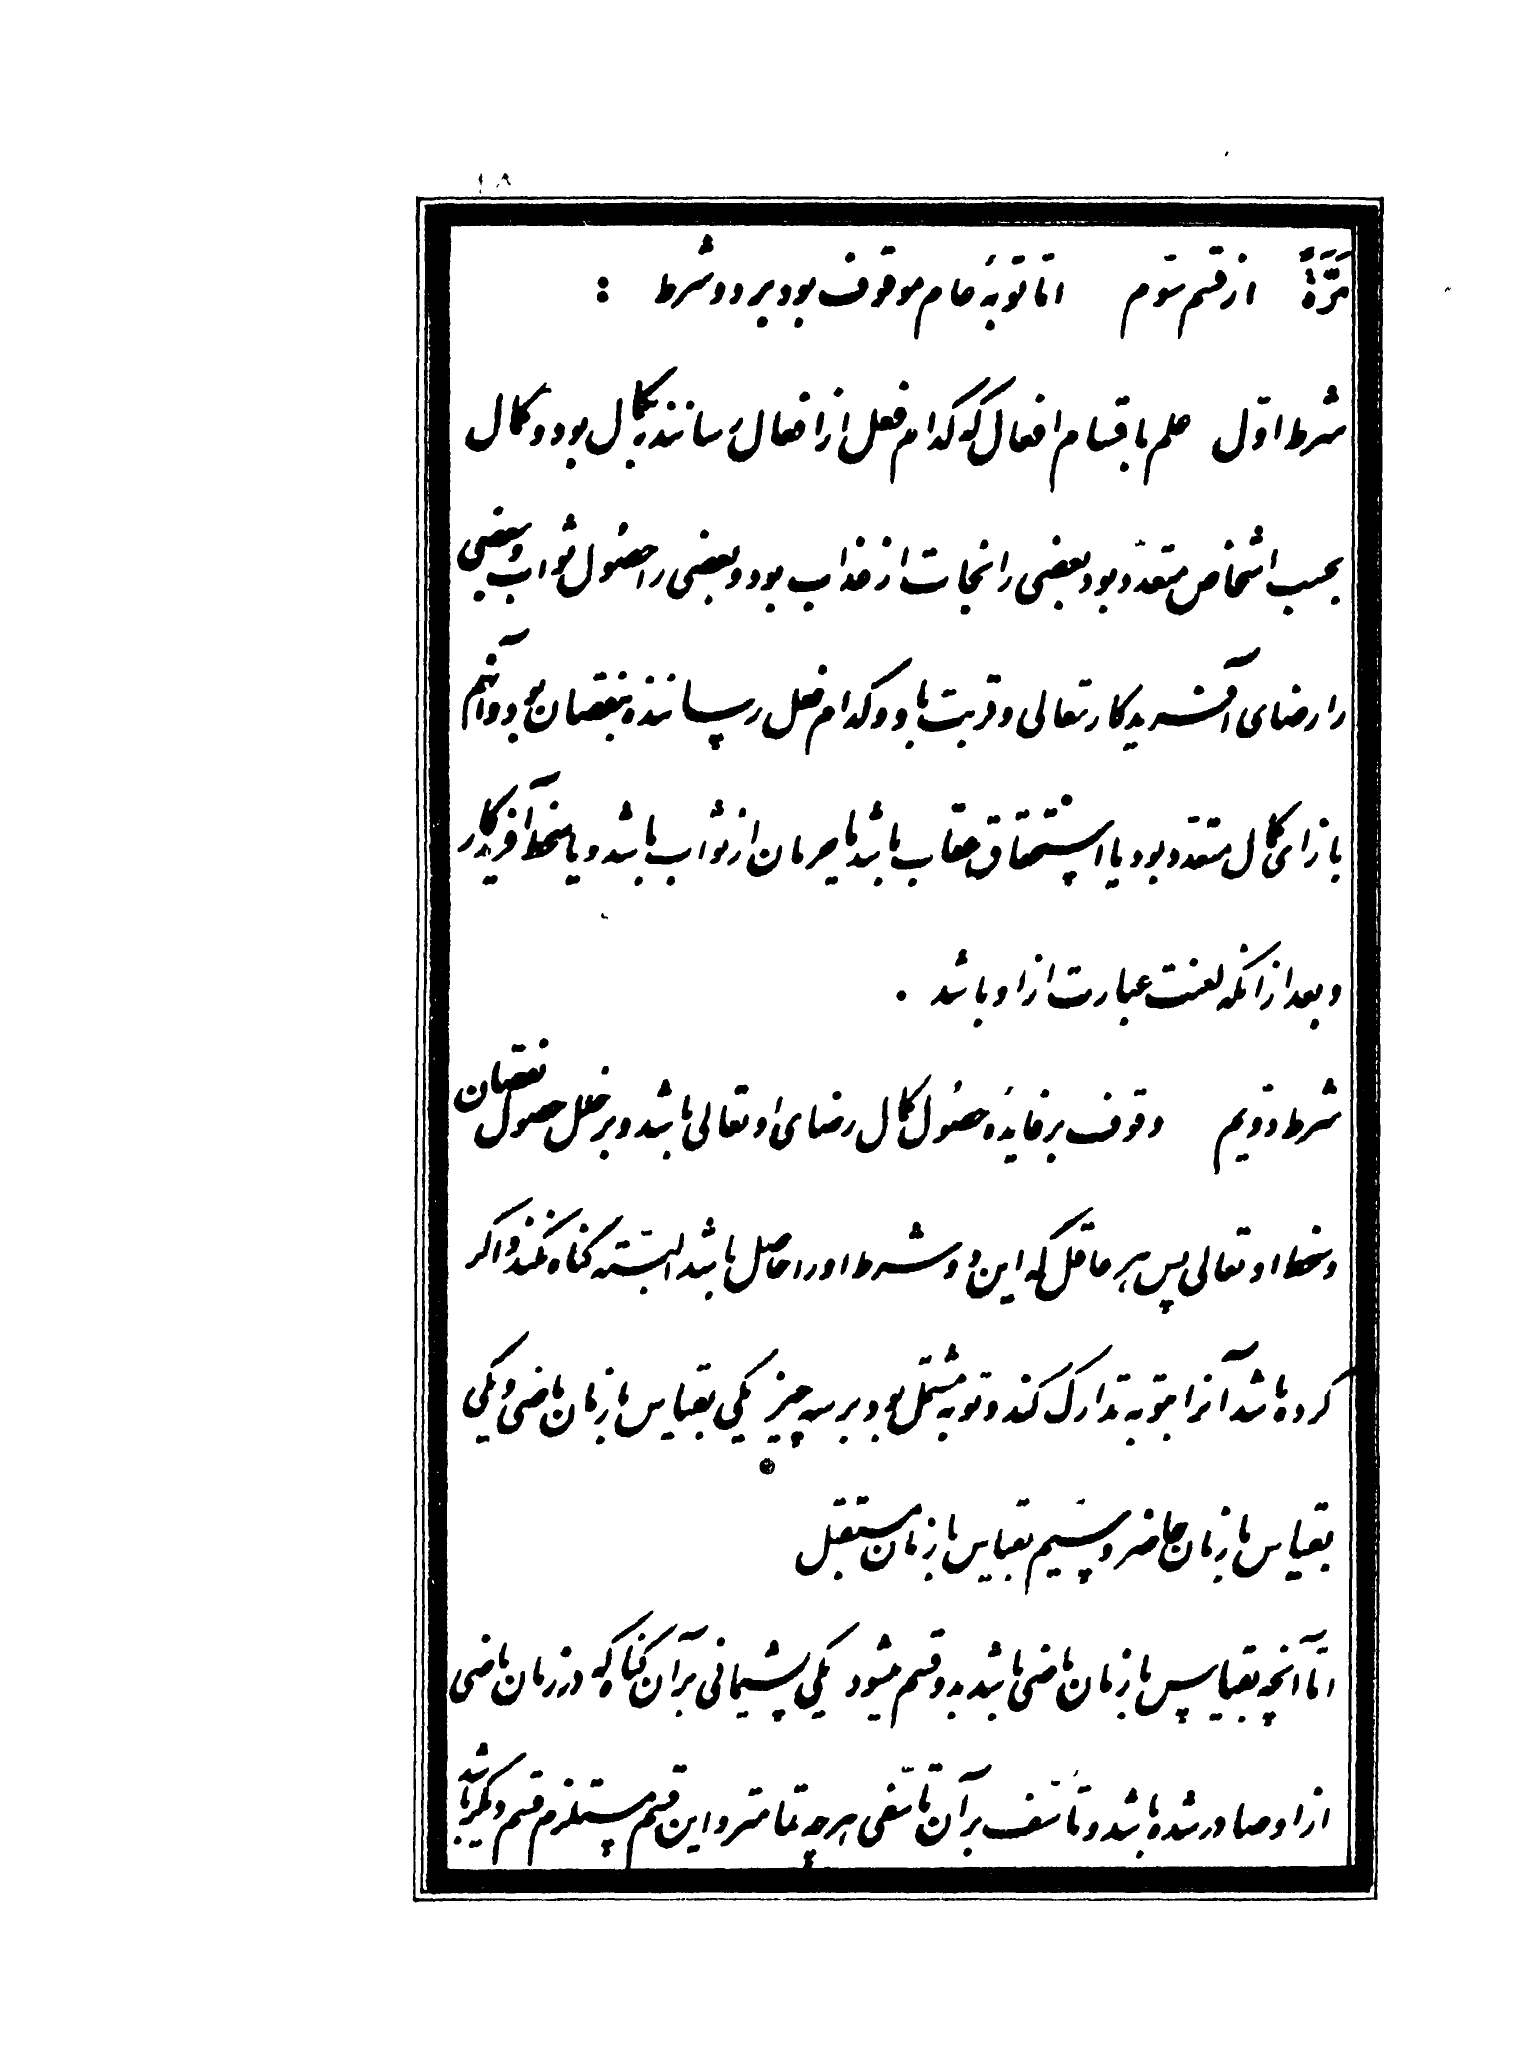 ۱۸
مَرَّةً از قسم سوّم امّا توبهٔ عام موقوف بود بر دو شرط :
شرط اوّل علم باقسام افعال که کدام فعل از افعال رسانندهٔ بکمال بود و کمال
بحسب اشخاص متعدّد بود بعضی را نجات از عذاب بود و بعضی را حصُول ثواب و بعضی
را رضای آفریدکار تعالی و قربت باو و کدام فعل رساننده بنقصان بود و آنهم
بازای کمال متعدد بود یا استحقاق عقاب باشد یا حرمان از ثواب باشد و یا سخط آفریدکار
و بعد از انکه لعنت عبارت از او باشد .
شرط دوّیم وقوف بر فایدهٔ حصُول کمال رضای او تعالی باشد و بر خلل حصول نقصان
و سخط او تعالی پس هر عاقل که این دو شرط او را حاصل باشد البتّه کناه نکند و اکر
کرده باشد آنرا بتوبه تدارک کند و توبه مشتمل بود بر سه چیز یکی بقیاس با زمان ماضی و یکی
بقیاس با زمان حاضر و سیم بقیاس با زمان مستقبل
امّا آنچه بقیاس با زمان ماضی باشد بدو قسم میشود یکی پشیمانی بر آن کناه که در زمان ماضی
از او صادر شده باشد و تأسّف بر آن تاسّفی هر چه تمامتر و این قسم مستلزم قسم دیکر باشد